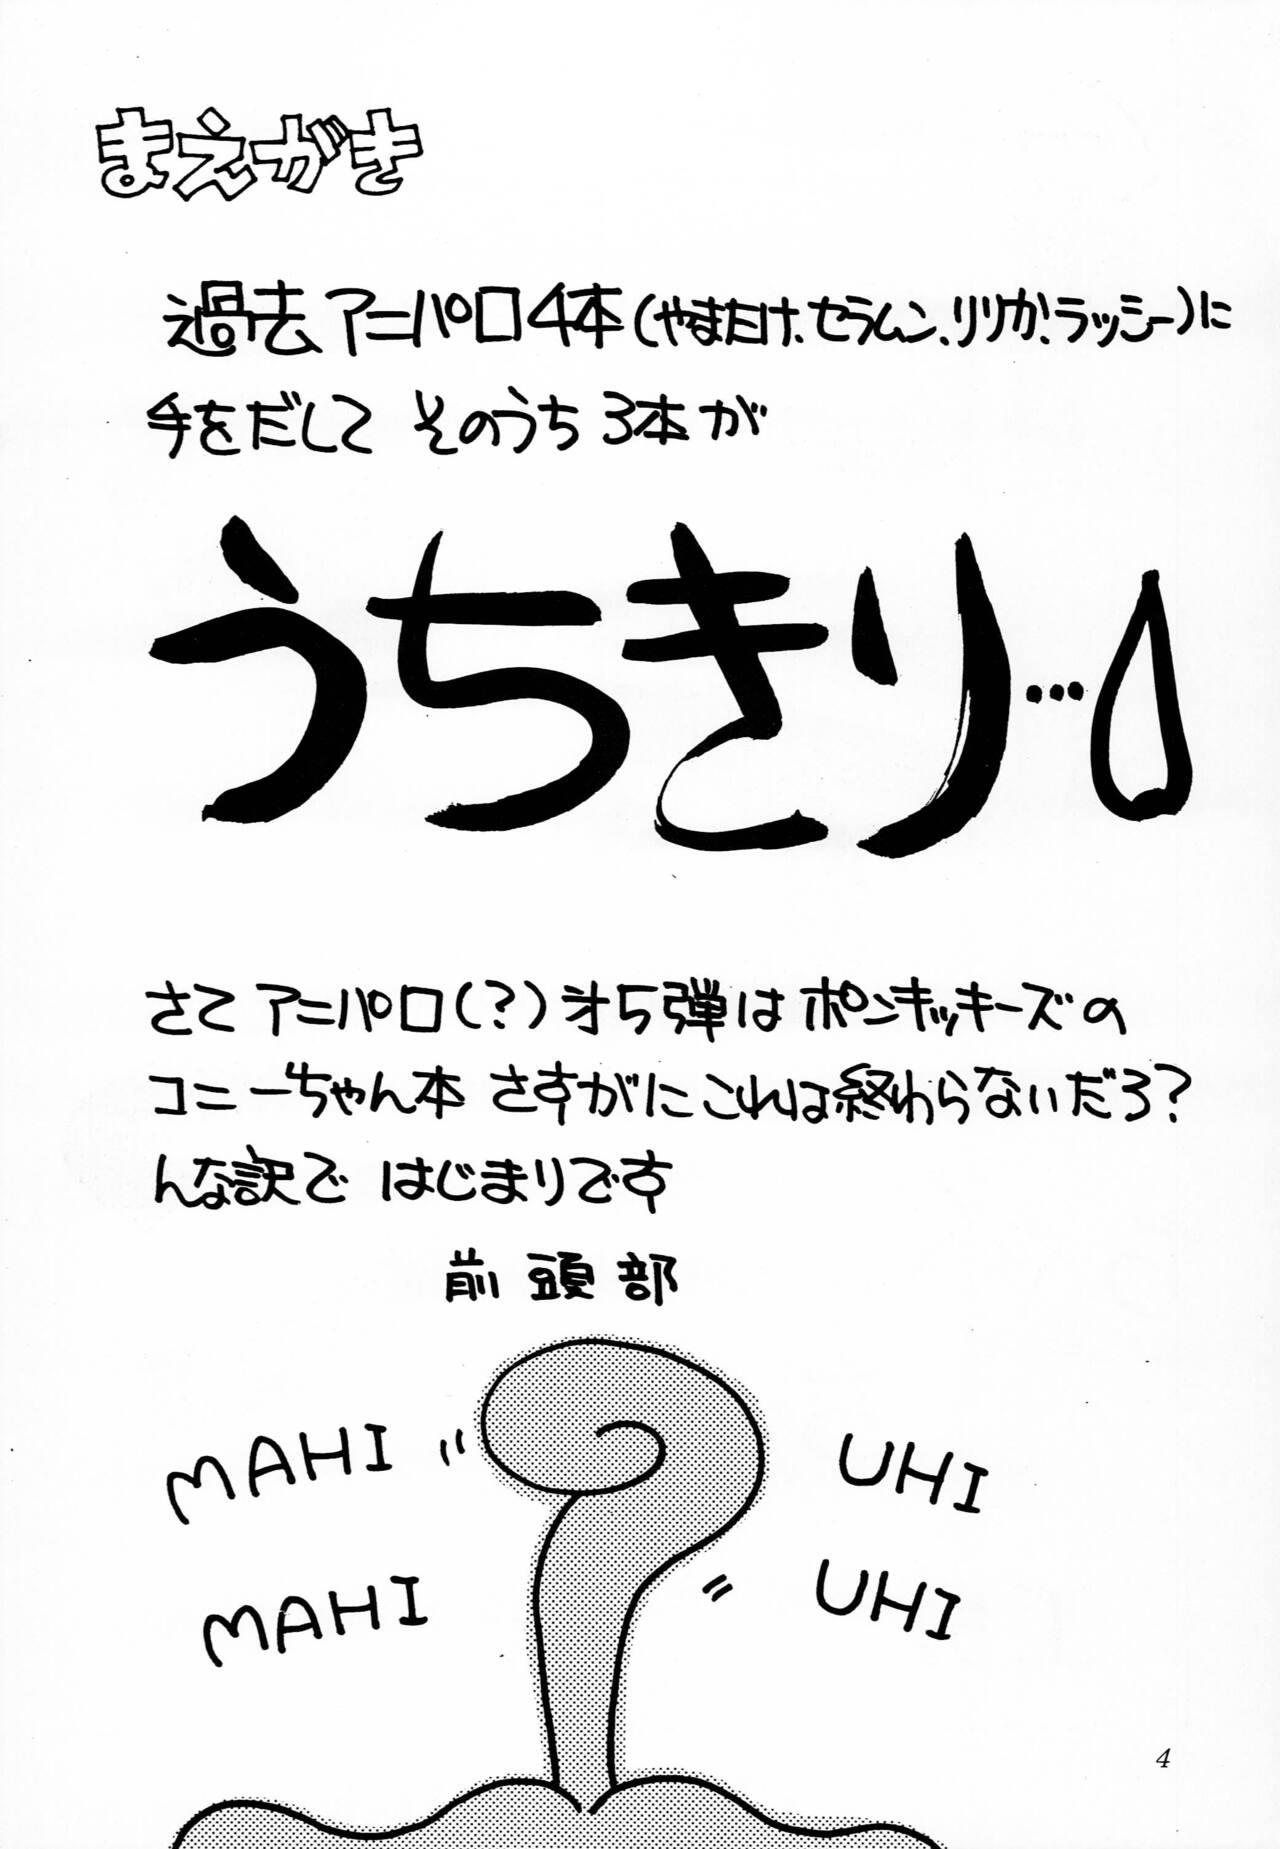 まえがき
過去アニパロ4本(やまたけ、セラムン、リリカ、ラッシー)に
手をだして そのうち3本が
うちきり…
さて アニパロ(?)才5弾は ポンキッキーズの
コニーちゃん本 さすがに これは終わらないだろ?
んな訳で はじまりです
前頭部
MAHI
UHI
MAHI
UHI
4